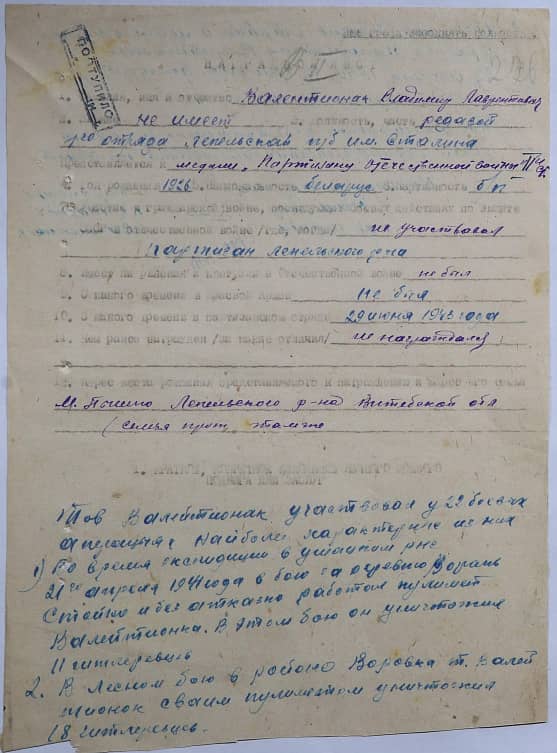 ПОСТУПИЛО
НАГРАДНОЙ ЛИСТ
1. имя и отчество Валентионак Владимир Лаврентович
2. не имеет 3. Должность, часть редавой
1го отряда Лепельской п/б им. Сталина
Представляется к медали "Партизану Отечественной войны" II ст.
4. Год рождения 1926 5. Национальность беларус 6. Партийность б/п
7. Участие в гражданской войне, последующих боевых действиях по защите
отечественной войне /где, когда/ не участвовал
партизан Лепельского р-на
8. Имеет ли ранения и контузии в Отечественной войне не был
9. С какого времени в Красной Армии Не был
10. С какого времени в партизанском отряде 29 июня 1943 года
11. Чем ранее награжден /за какие отличия/ не награждался
12. Адрес места
М. Пышно Лепельского р-на Витебской обл
(семья прож. там же
1. КРАТКОЕ, КОНКРЕТНОЕ ИЗЛОЖЕНИЕ ЛИЧНОГО БОЕВОГО
ПОДВИГА ИЛИ ЗАСЛУГ
Тов Валентионак участвовал у 22 боевых
апирацыях наиболее характерные из них
1) Во время экспедиции в ушацком рне
21го апреля 1944 года в бою за деревню Ворань
Стойко и без атказно работал пулимет
Валентионка. В этом бою он уничтожил
11 гитлеревцев
2. В Лесном бою в районо Воровка т. Вален
тионок своим пулиметом уничтожил
18 гитлеревцев.